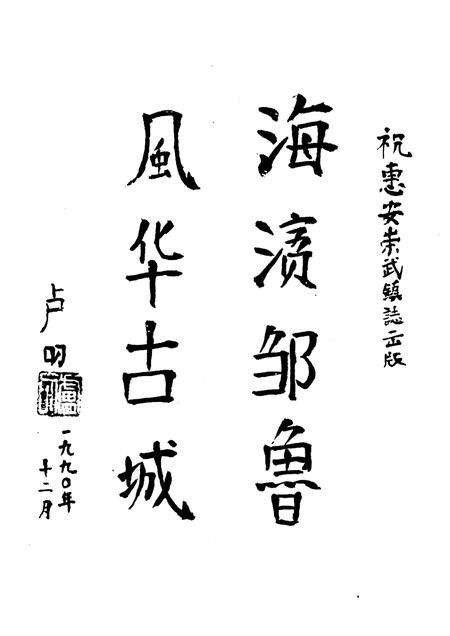 祝惠安崇武鎮誌出版
海濱邹魯
風华古城
卢明
一九九〇年
十二月